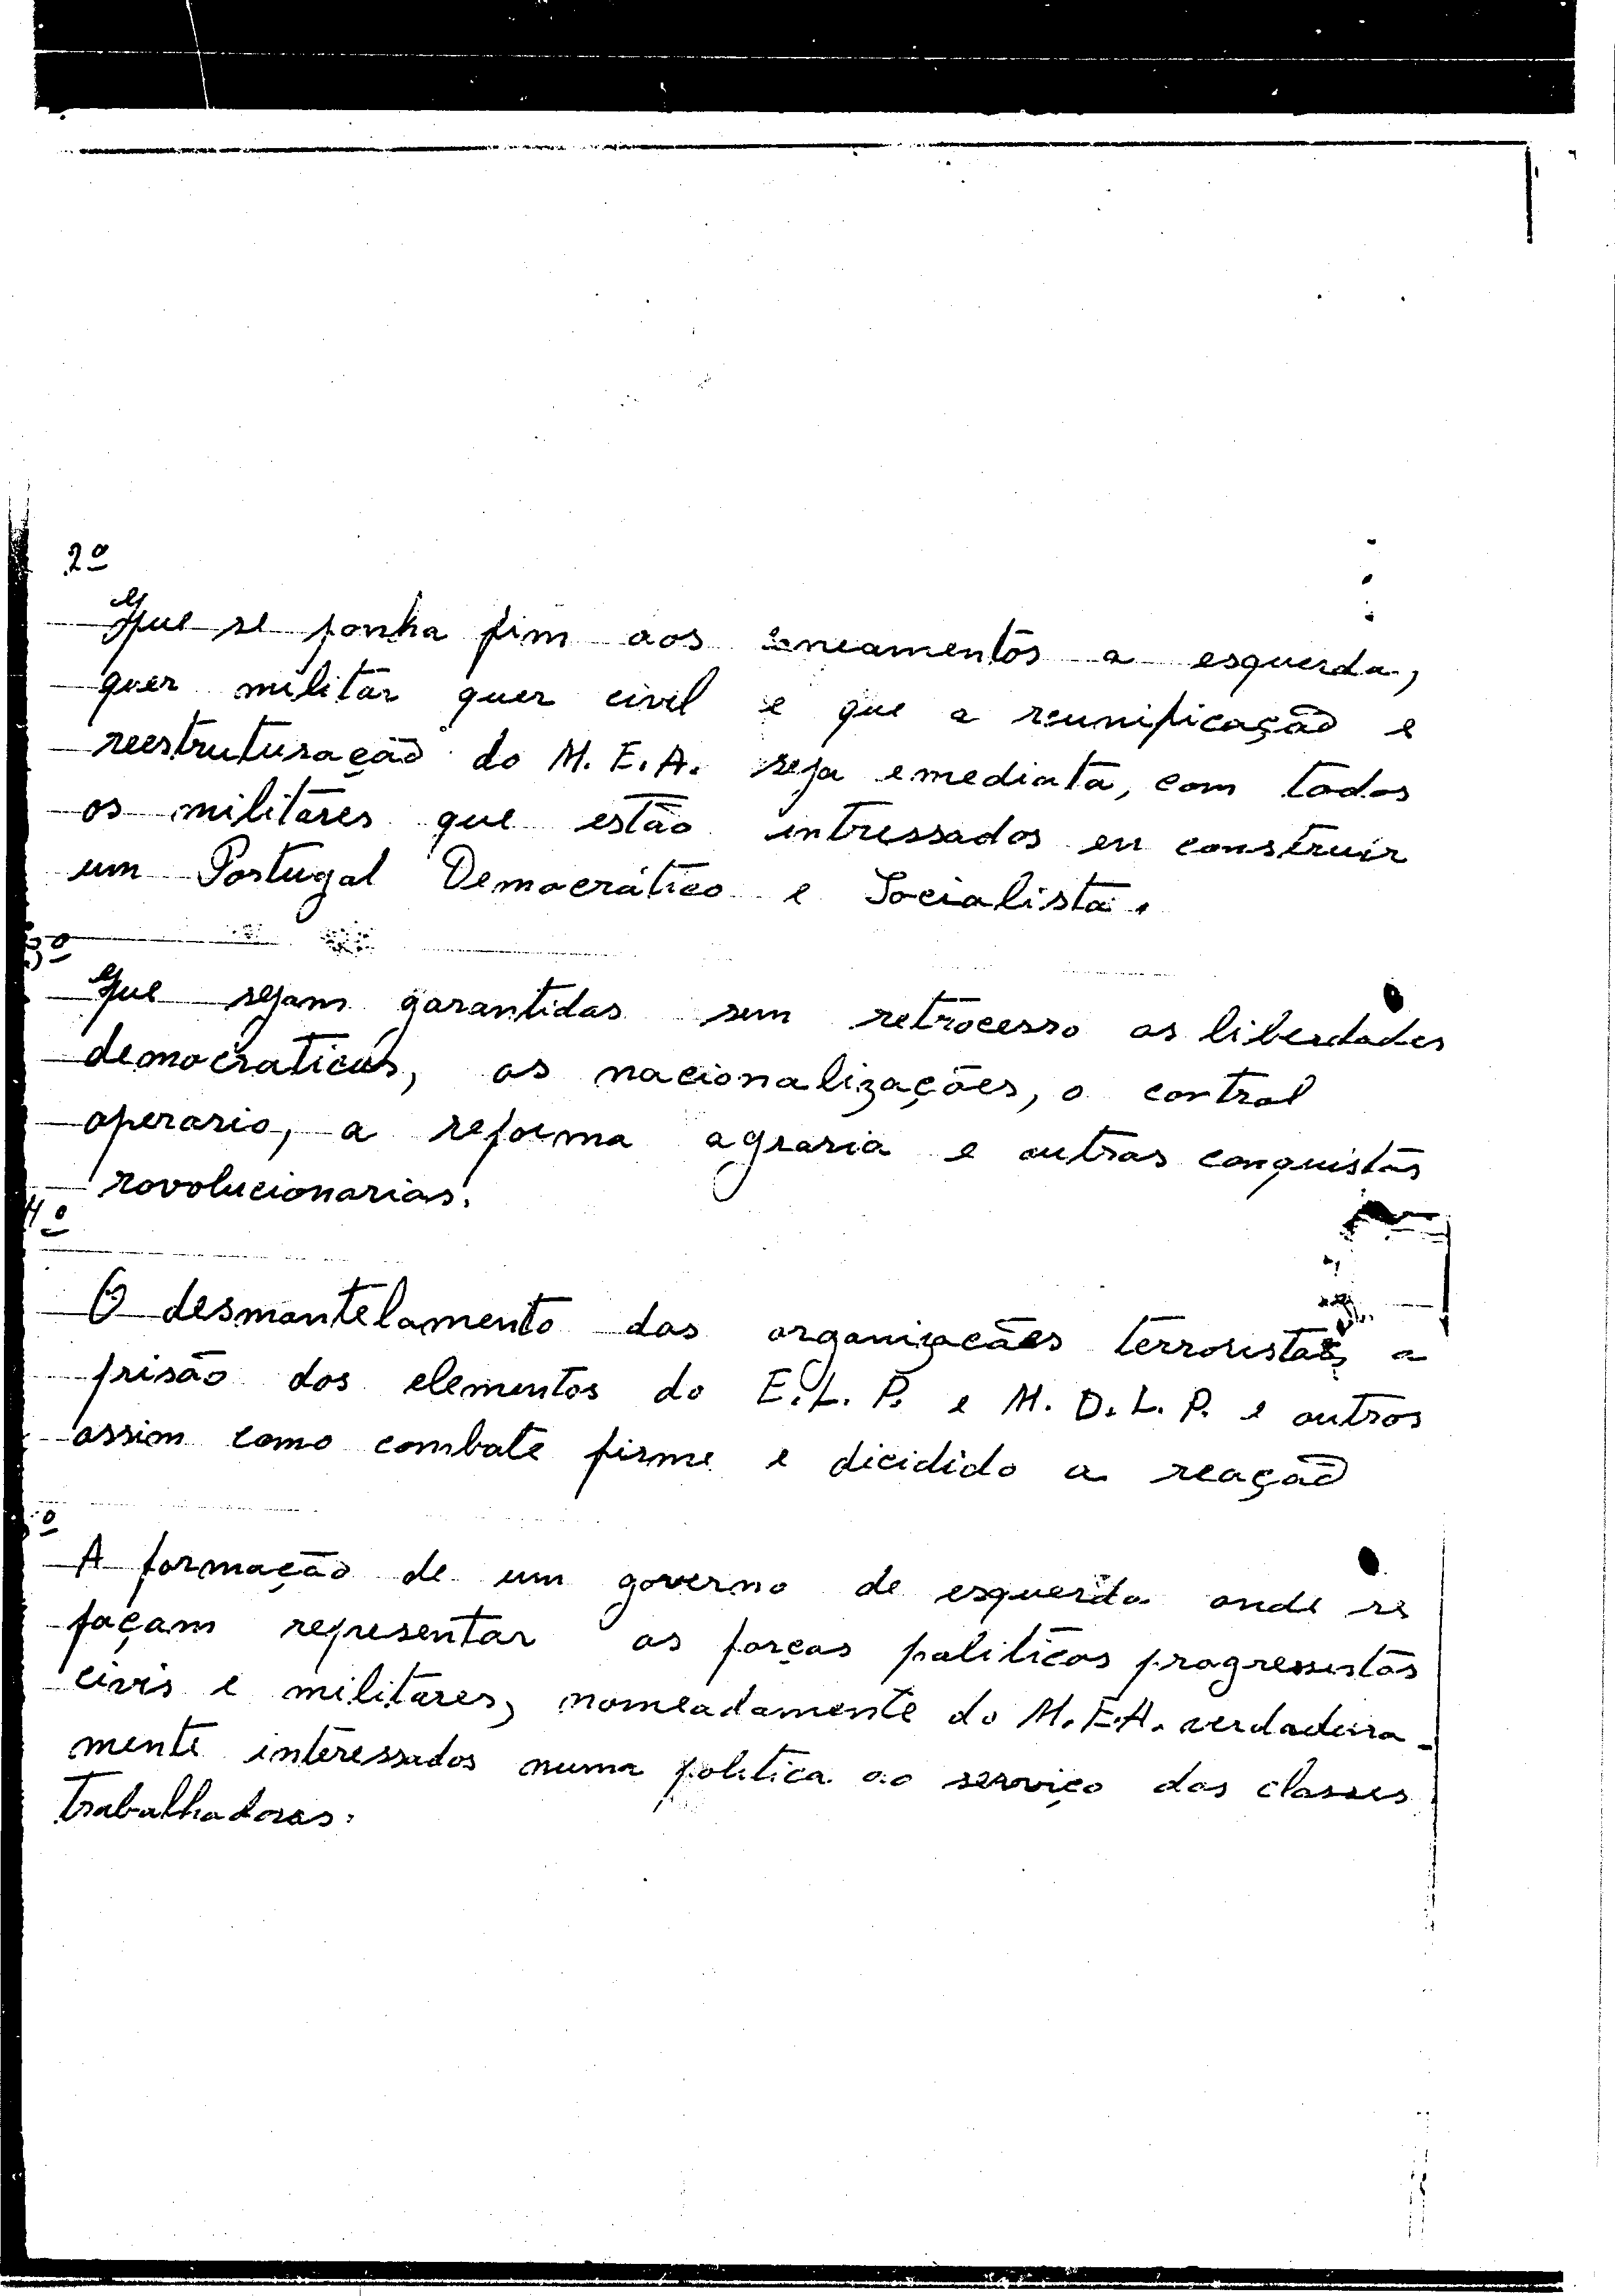 2º
Que se ponha fim aos saneamentos a esquerda,
quer militar quer civil e que a reunificação e
reestruturação do M. F. A. seja emediata, com todos
os militares que estão intressados em construir
um Portugal Democrático e Socialista.
3º
Que sejam garantidas sem retrocesso as liberdades
democraticas, as nacionalizações, o control
operario, a reforma agraria e outras conquistas
rovolucionarias.
4º
O desmantelamento das organizacães terroristas, a
prisão dos elementos do E. L. P. e M. D. L. P. e outros
assim como combate firme e dicidido a reação
5º
A formação de um governo de esquerda onde se
façam representar as forças politicas progressistas
civis e militares, nomeadamente do M. F. A. verdadeira-
mente interessados numa politica ao serviço das classes
Trabalhadoras.